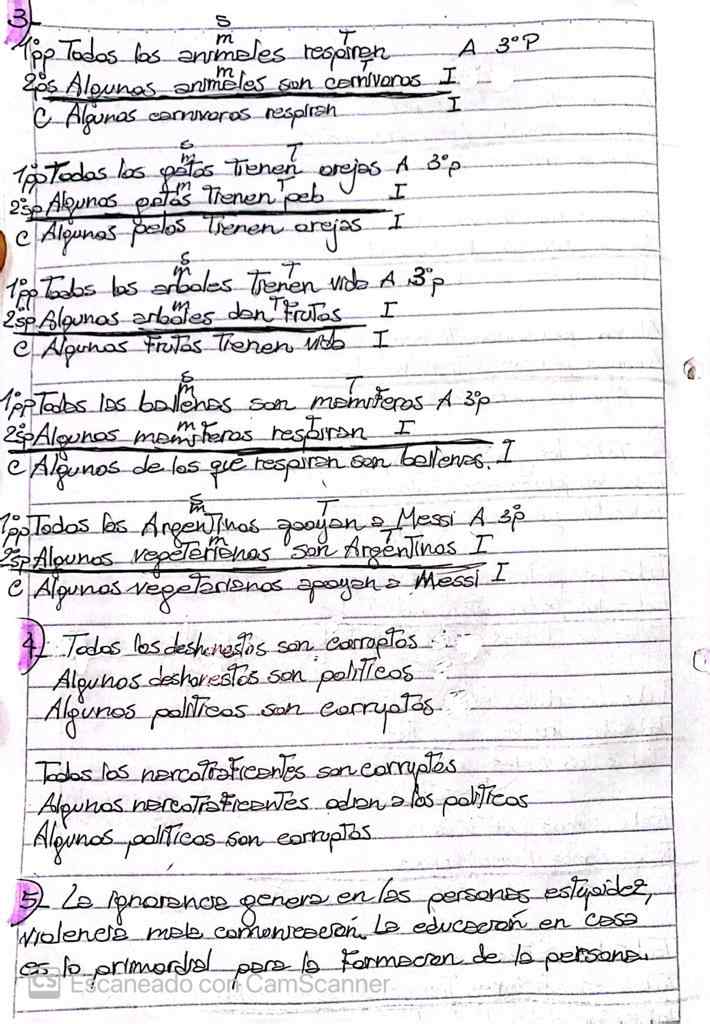 3-
S
m T
1ºpp Todos los animales respiran A 3ºp
m T
2ºps Algunos animales son carnivoros I
C Algunos carnivoros respiran I
S
m T
1ºpp Todos los gatos Tienen orejas A 3ºp
m T
2ºsp Algunos gatos Tienen pelo I
C Algunos pelos Tienen orejas I
S
m T
1ºpp Todos los arboles Tienen vida A 3ºp
m T
2ºsp Algunos arboles dan Frutos I
C Algunas Frutas Tienen vida I
S
m T
1ºpp Todas las ballenas son mamiferos A 3ºp
m T
2ºsp Algunos mamiferos respiran I
C Algunos de los que respiran son ballenas. I
S
m T
1ºpp Todos los Argentinos apoyan a Messi A 3ºp
m T
2ºsp Algunos vegetarianos son Argentinos I
C Algunos vegetarianos apoyan a Messi I
4- Todos los deshonestos son corruptos
Algunos deshonestos son politicos
Algunos politicos son corruptos
Todos los narcotraficantes son corruptos
Algunos narcotraficantes odian a los politicos
Algunos politicos son corruptos
5- La ignorancia genera en las personas estupidez,
violencia mala comunicación. La educación en casa
es lo primordial para la Formacion de la persona.
CS Escaneado con CamScanner